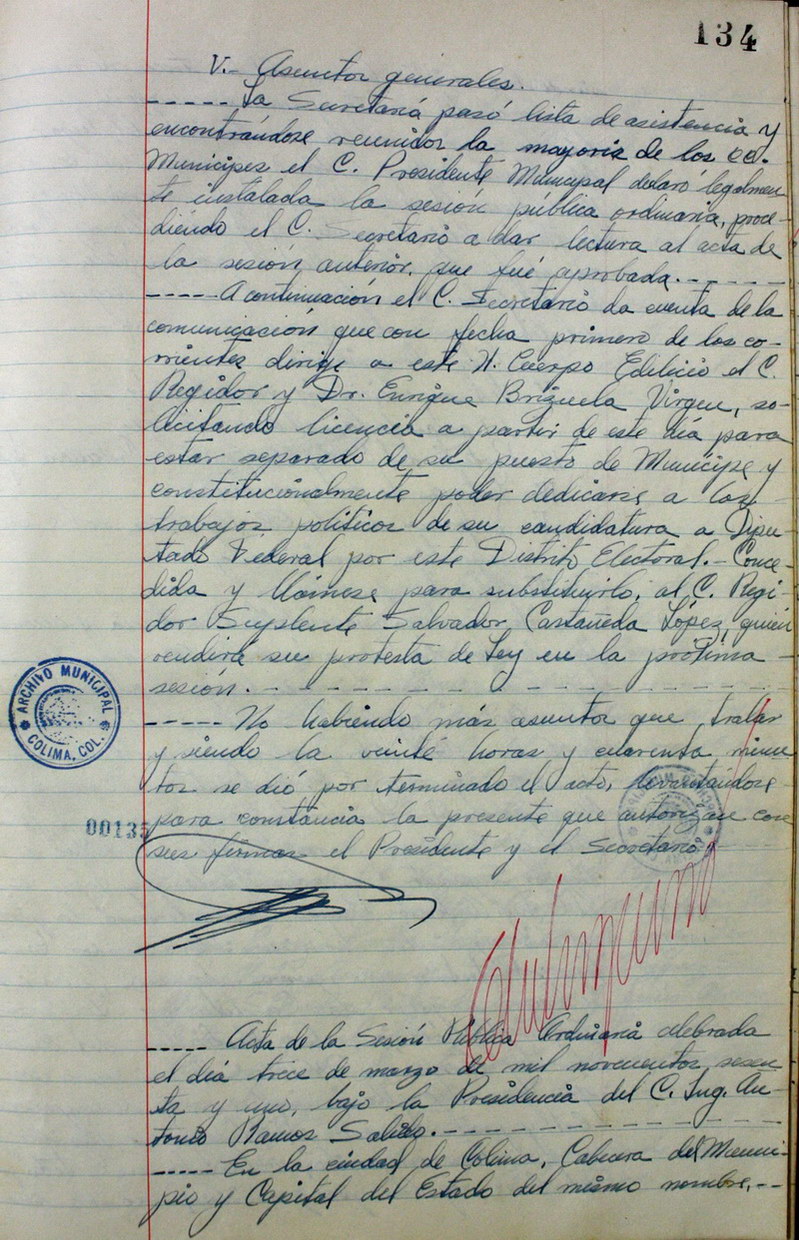 134
V.- Asuntos generales.
-----La Secretaría pasó lista de asistencia y
encontrándose reunidos la mayoría de los CC.
Munícipes el C. Presidente Municipal declaró legalmen-
te instalada la sesión pública ordinaria, proce-
diendo el C. Secretario a dar lectura al acta de
la sesión anterior, que fué aprobada.------
-----A continuación el C. Secretario da cuenta de la
comunicación que con fecha primero de los co-
rrientes dirige a este H. Cuerpo Edilicio el C.
Regidor y Dr. Enrique Brizuela Virgen, so-
licitando licencia a partir de este día para
estar separado de su puesto de Munícipe y
constitucionalmente poder dedicarse a los
trabajos políticos de su candidatura a Dipu-
tado Federal por este Distrito Electoral.- Conce-
dida y llámese para substituirlo, al C. Regi-
dor Suplente Salvador Castañeda López, quien
rendirá su protesta de Ley en la próxima
sesión.- - - - - - - - - - - - - - -
-----No habiendo más asuntos que tratar
y siendo la veinte horas y cuarenta minu-
tos se dió por terminado el acto, levantándose
para constancia la presente que autorizan con
sus firmas el Presidente y el Secretario
ARCHIVO MUNICIPAL
COLIMA, COL.
00135
-----Acta de la Sesión Pública Ordinaria celebrada
el día trece de marzo de mil novecientos sesen
ta y uno, bajo la Presidencia del C. Ing. An-
tonio Ramos Salido.- - - - - - - - - -
-----En la ciudad de Colima, Cabecera del Munici-
pio y Capital del Estado del mismo nombre,--